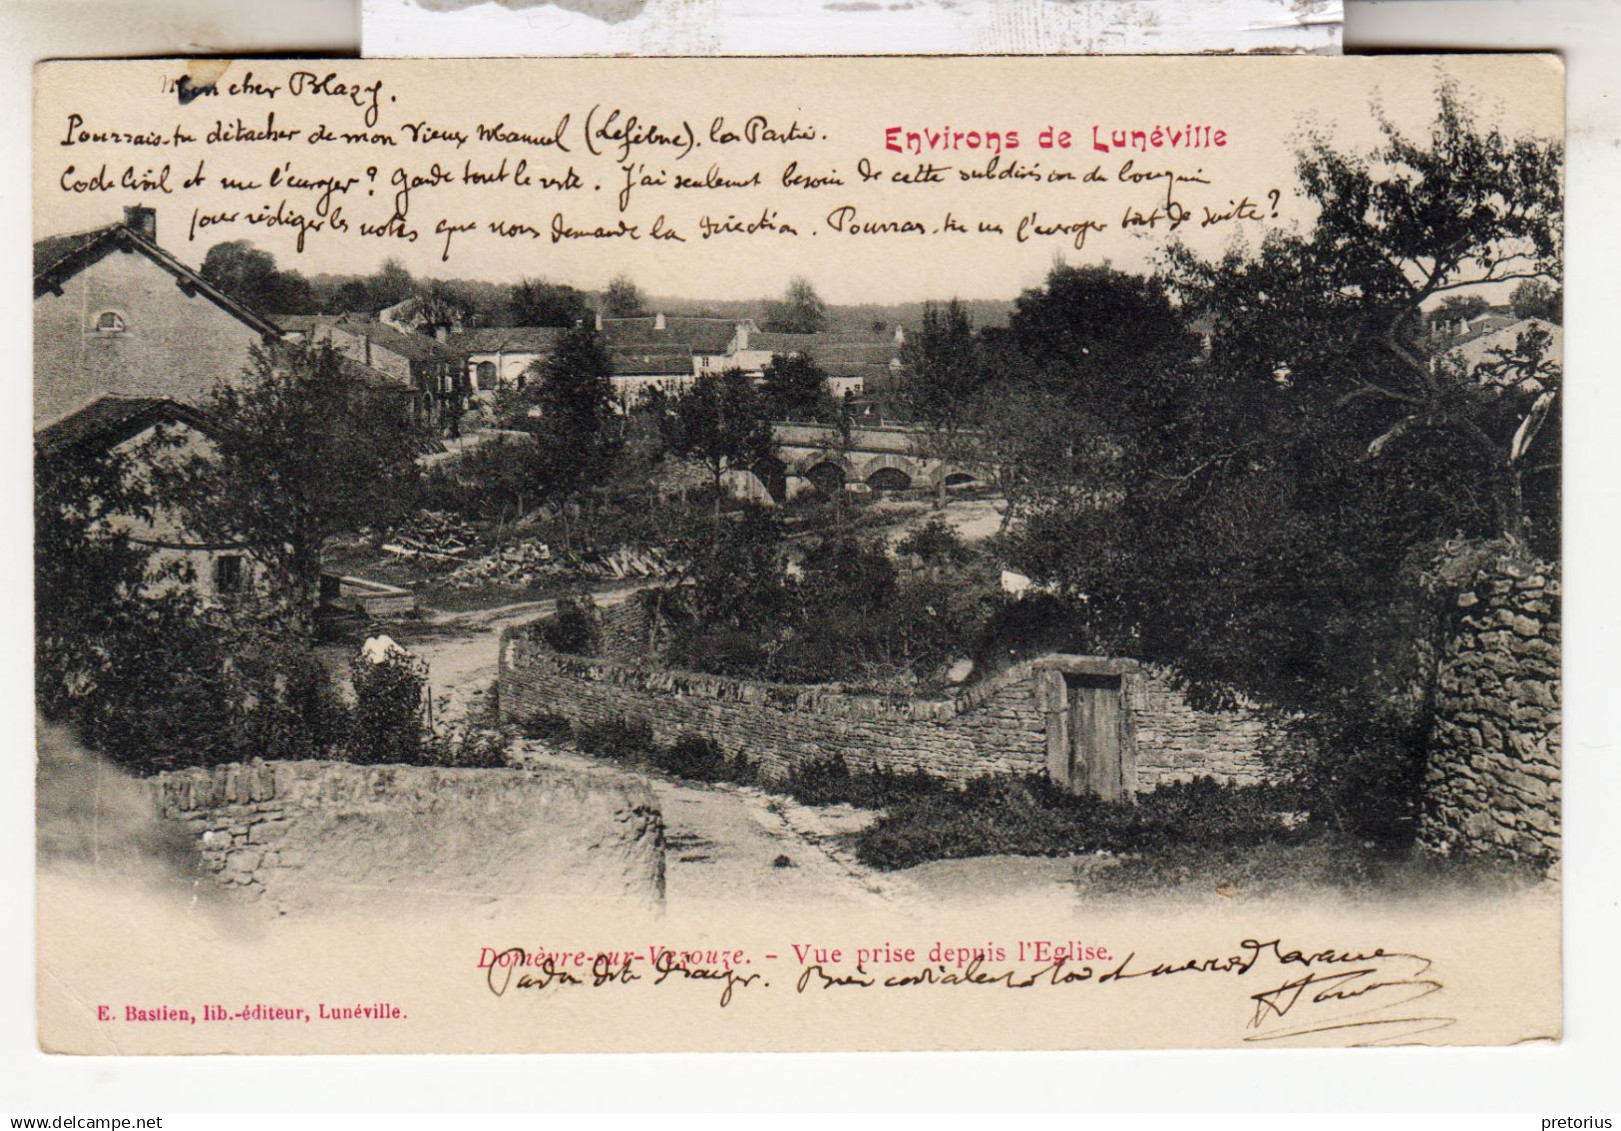 Mon cher Blazy.
Pourrais-tu détacher de mon vieux Manuel (Lefèbvre). la Partie.
Environs de Lunéville
Code Civil et me l'envoyer ? Garde tout le reste. J'ai seulement besoin de cette subdivision du bouquin
pour rédiger les notes que nous demande la Direction. Pourras-tu me l'envoyer tout de suite ?
Domèvre-sur-Vezouze. - Vue prise depuis l'Eglise.
Pardon de te déranger. Bien cordialement à toi et merci d'avance
E. Bastien, lib.-éditeur, Lunéville.
delcampe.net
pretorius